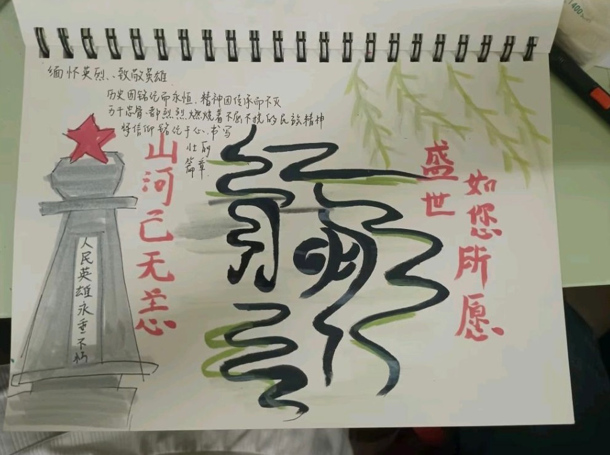 缅怀英烈..致敬英雄
历史因铭记而永恒.精神因传承而不灭
万千忠骨.都烈烈燃烧着不屈不挠的民族精神
将信仰铭记于心.书写
壮丽
篇章
山河已无恙
清明
盛世
如您所愿
人民英雄永垂不朽